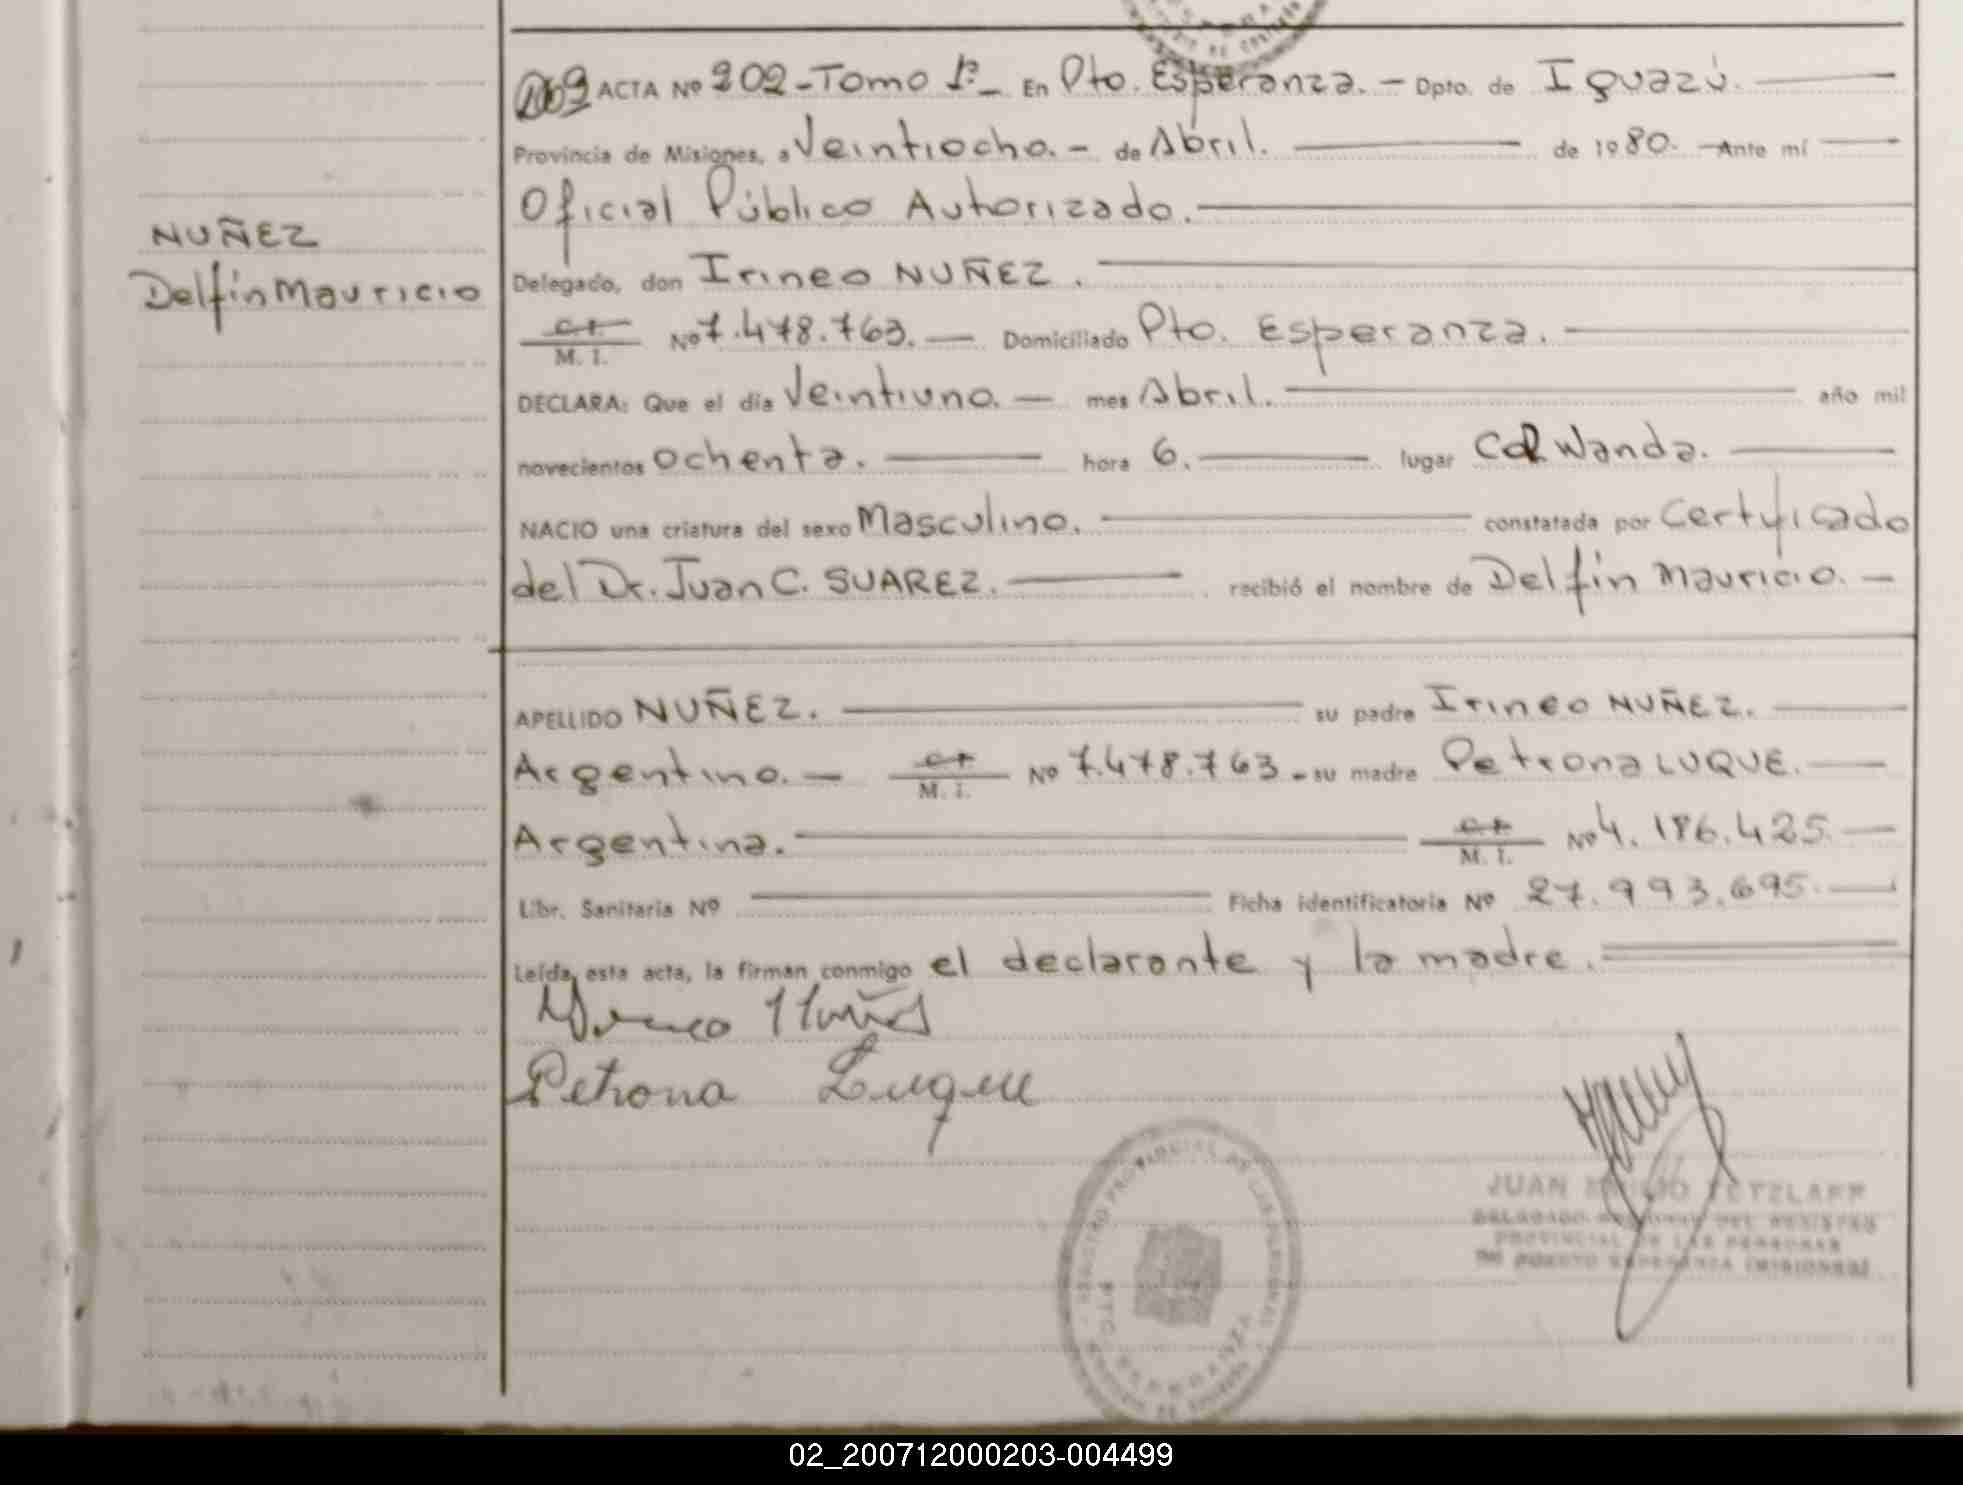 ACTA Nº 202-Tomo 1º- En Pto. Esperanza. - Dpto. de Iguazú.
Provincia de Misiones, a Veintiocho. - de Abril. de 1980. Ante mí
Oficial Público Autorizado.
NUÑEZ
Delfín Mauricio
Delegado, don Irineo NUÑEZ.
M. I. Nº 7.478.763. Domiciliado Pto. Esperanza.
DECLARA: Que el día Veintiuno. mes Abril. año mil
novecientos Ochenta. hora 6. lugar Col Wanda.
NACIO una criatura del sexo Masculino. constatada por Certificado
del Dr. Juan C. SUAREZ. recibió el nombre de Delfín Mauricio.
APELLIDO NUÑEZ. su padre Irineo NUÑEZ.
Argentino. M. I. Nº 7.478.763 - su madre Petrona LUQUE.
Argentina. M. I. Nº 4.186.425
Libr. Sanitaria Nº Ficha identificatoria Nº 27.993.695.
Leída, esta acta, la firman conmigo el declarante y la madre.
Petrona Luque
JUAN EMILIO TETZLAFF
DELEGADO REGIONAL DEL REGISTRO
PROVINCIAL DE LAS PERSONAS
DE PUERTO ESPERANZA (MISIONES)
REGISTRO PROVINCIAL DE LAS PERSONAS
PTO. ESPERANZA
02_200712000203-004499